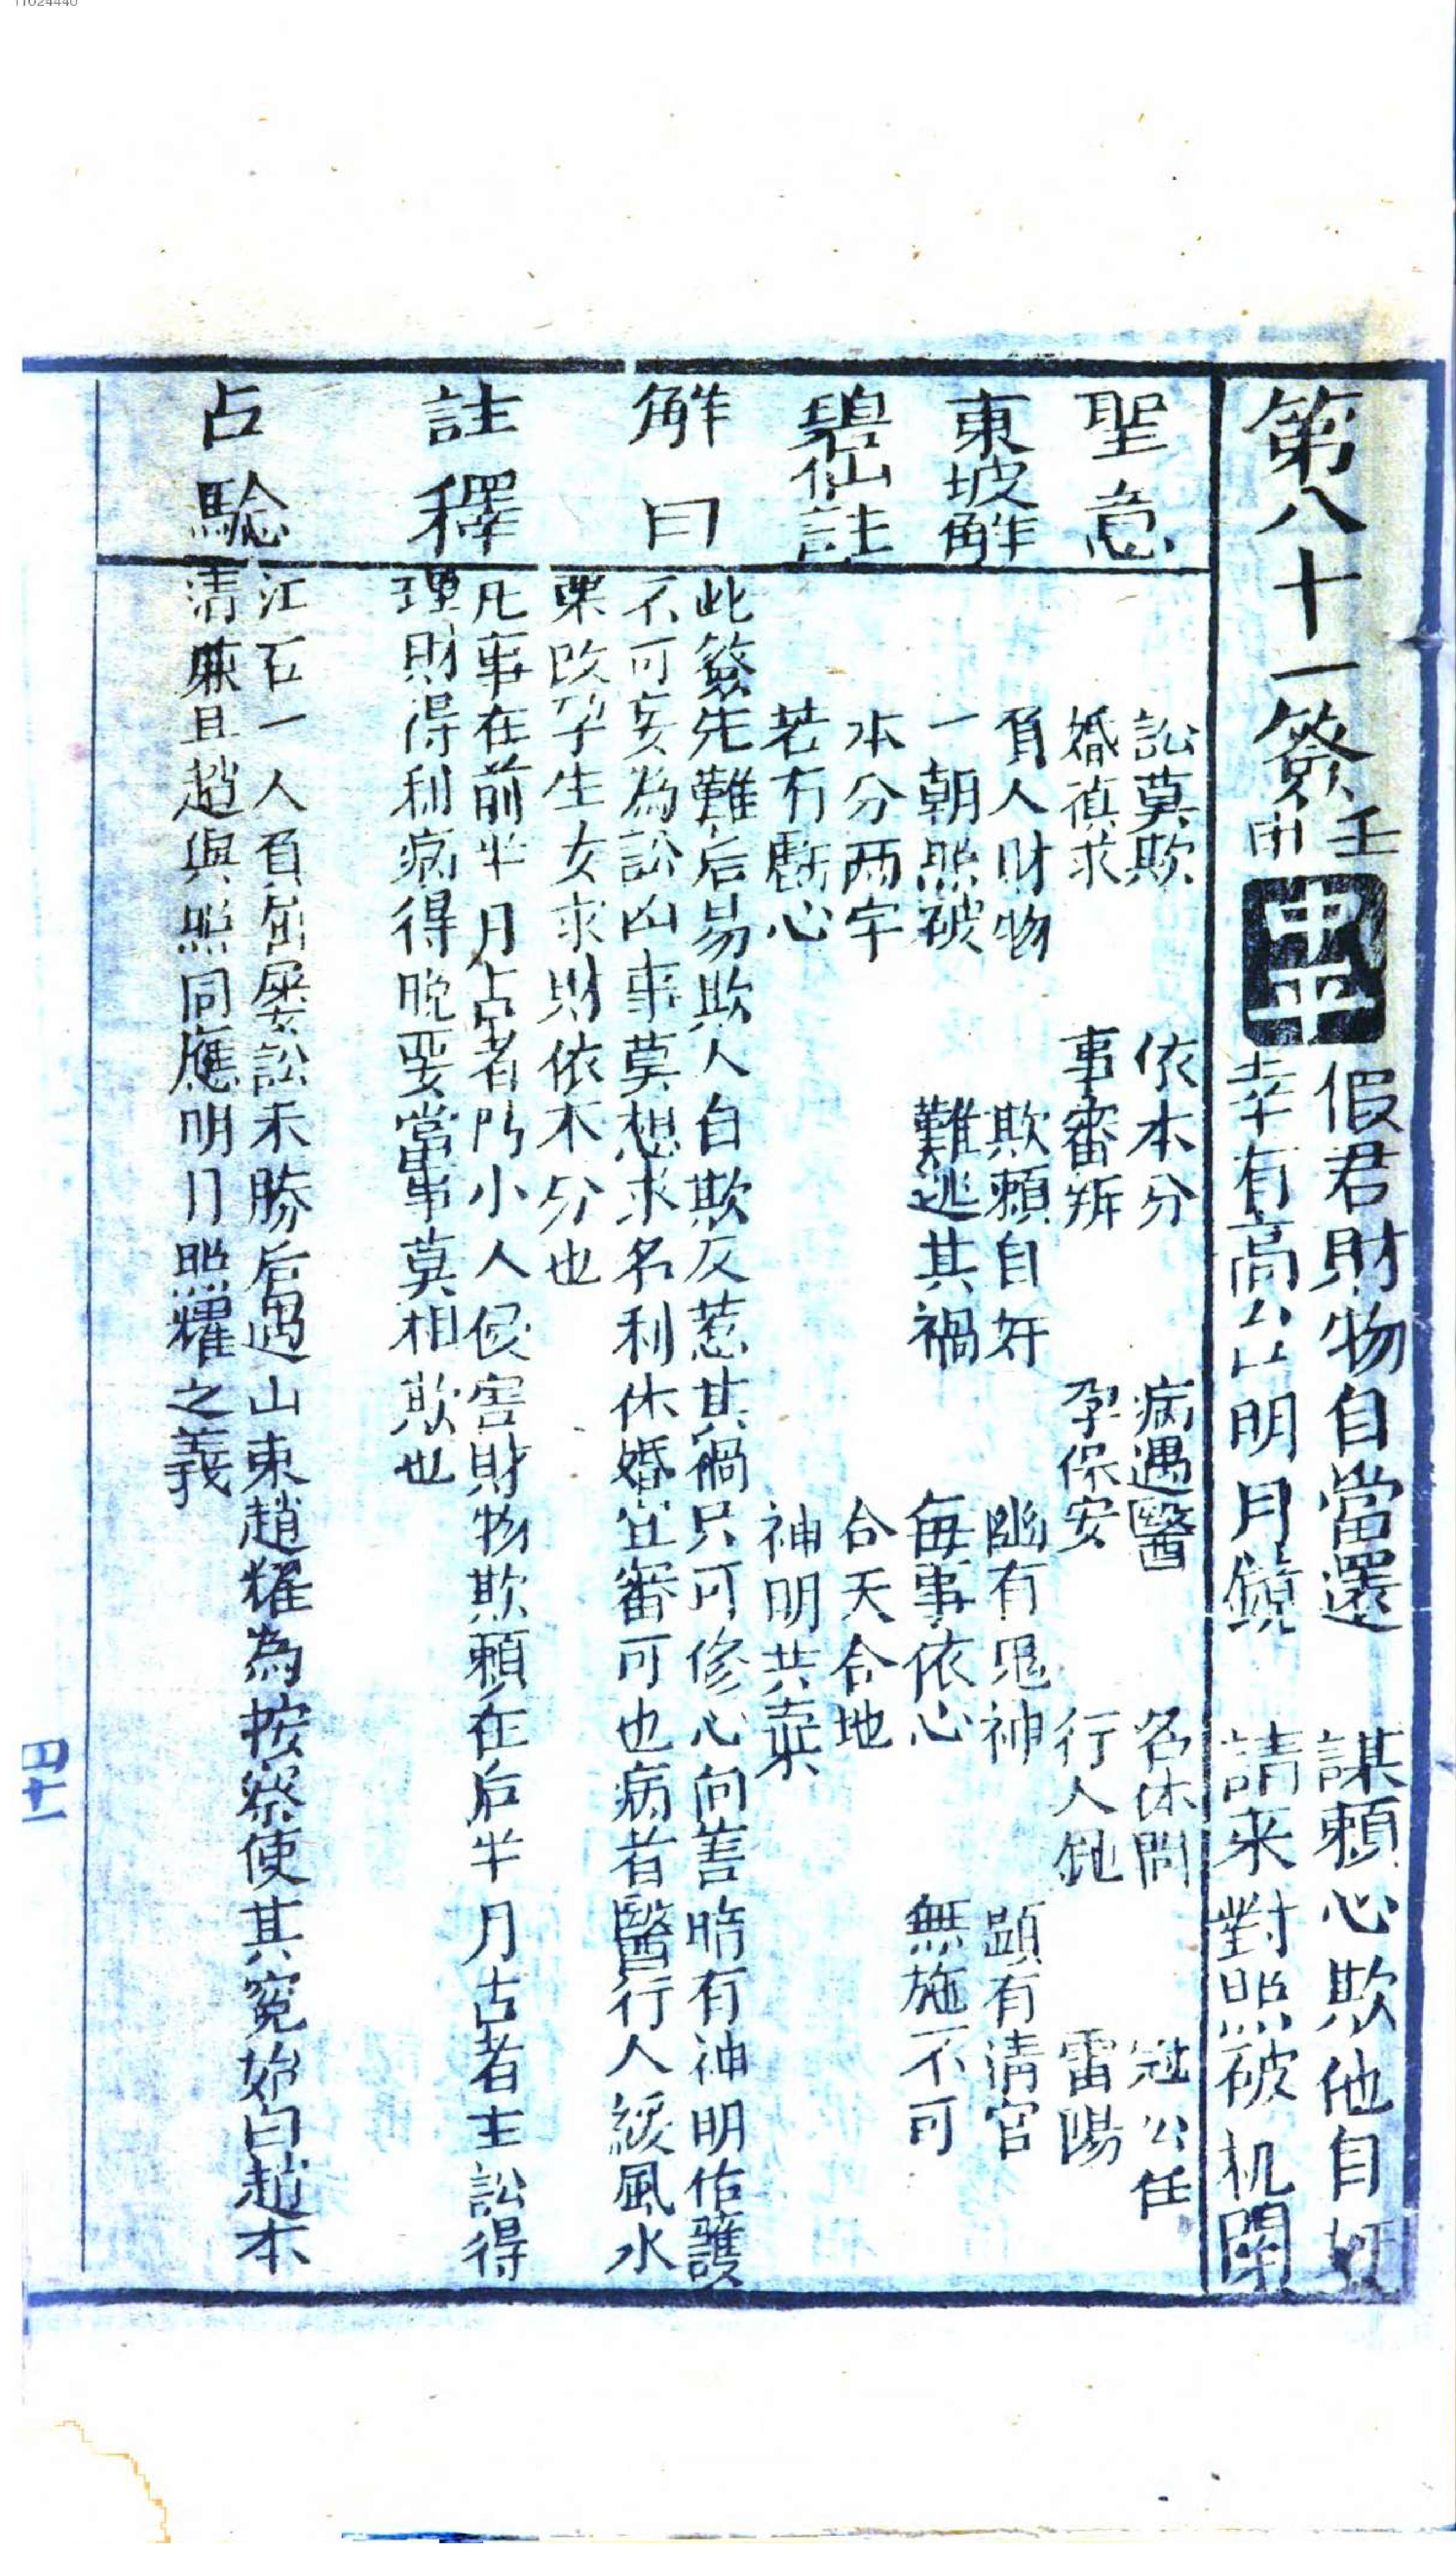 11624440
第八十一簽 壬甲 中平
假君財物自當還 謀賴心欺他自奸
幸有高公明月鏡 請來對照被机関
聖意
訟莫欺 依本分 病遇醫 名休問 冠公任
婚慎求 事審拆 孕保安 行人鈍 雷陽
東坡解
負人財物 欺賴自奸 幽有鬼神 顕有清官
一朝照破 難逃其禍 毎事依心 無施不可
碧仙註
本分两字 合天合地
若冇虧心 神明共棄
解曰
此簽先難后易欺人自欺反惹其禍只可修心向善暗有神明佑護
不可妄為訟凶事莫想求名利休婚宜審可也病者醫行人緩風水
果改孕生女求財依本分也
註釋
凡事在前半月占者防小人侵害財物欺賴在后半月古者主訟得
理財得利病得晚要當事莫相欺也
占驗
江右一人負屈屡訟未勝后遇山東趙耀為按察使其冤始白趙本
清廉且趙與照同應明月照耀之義
四十一